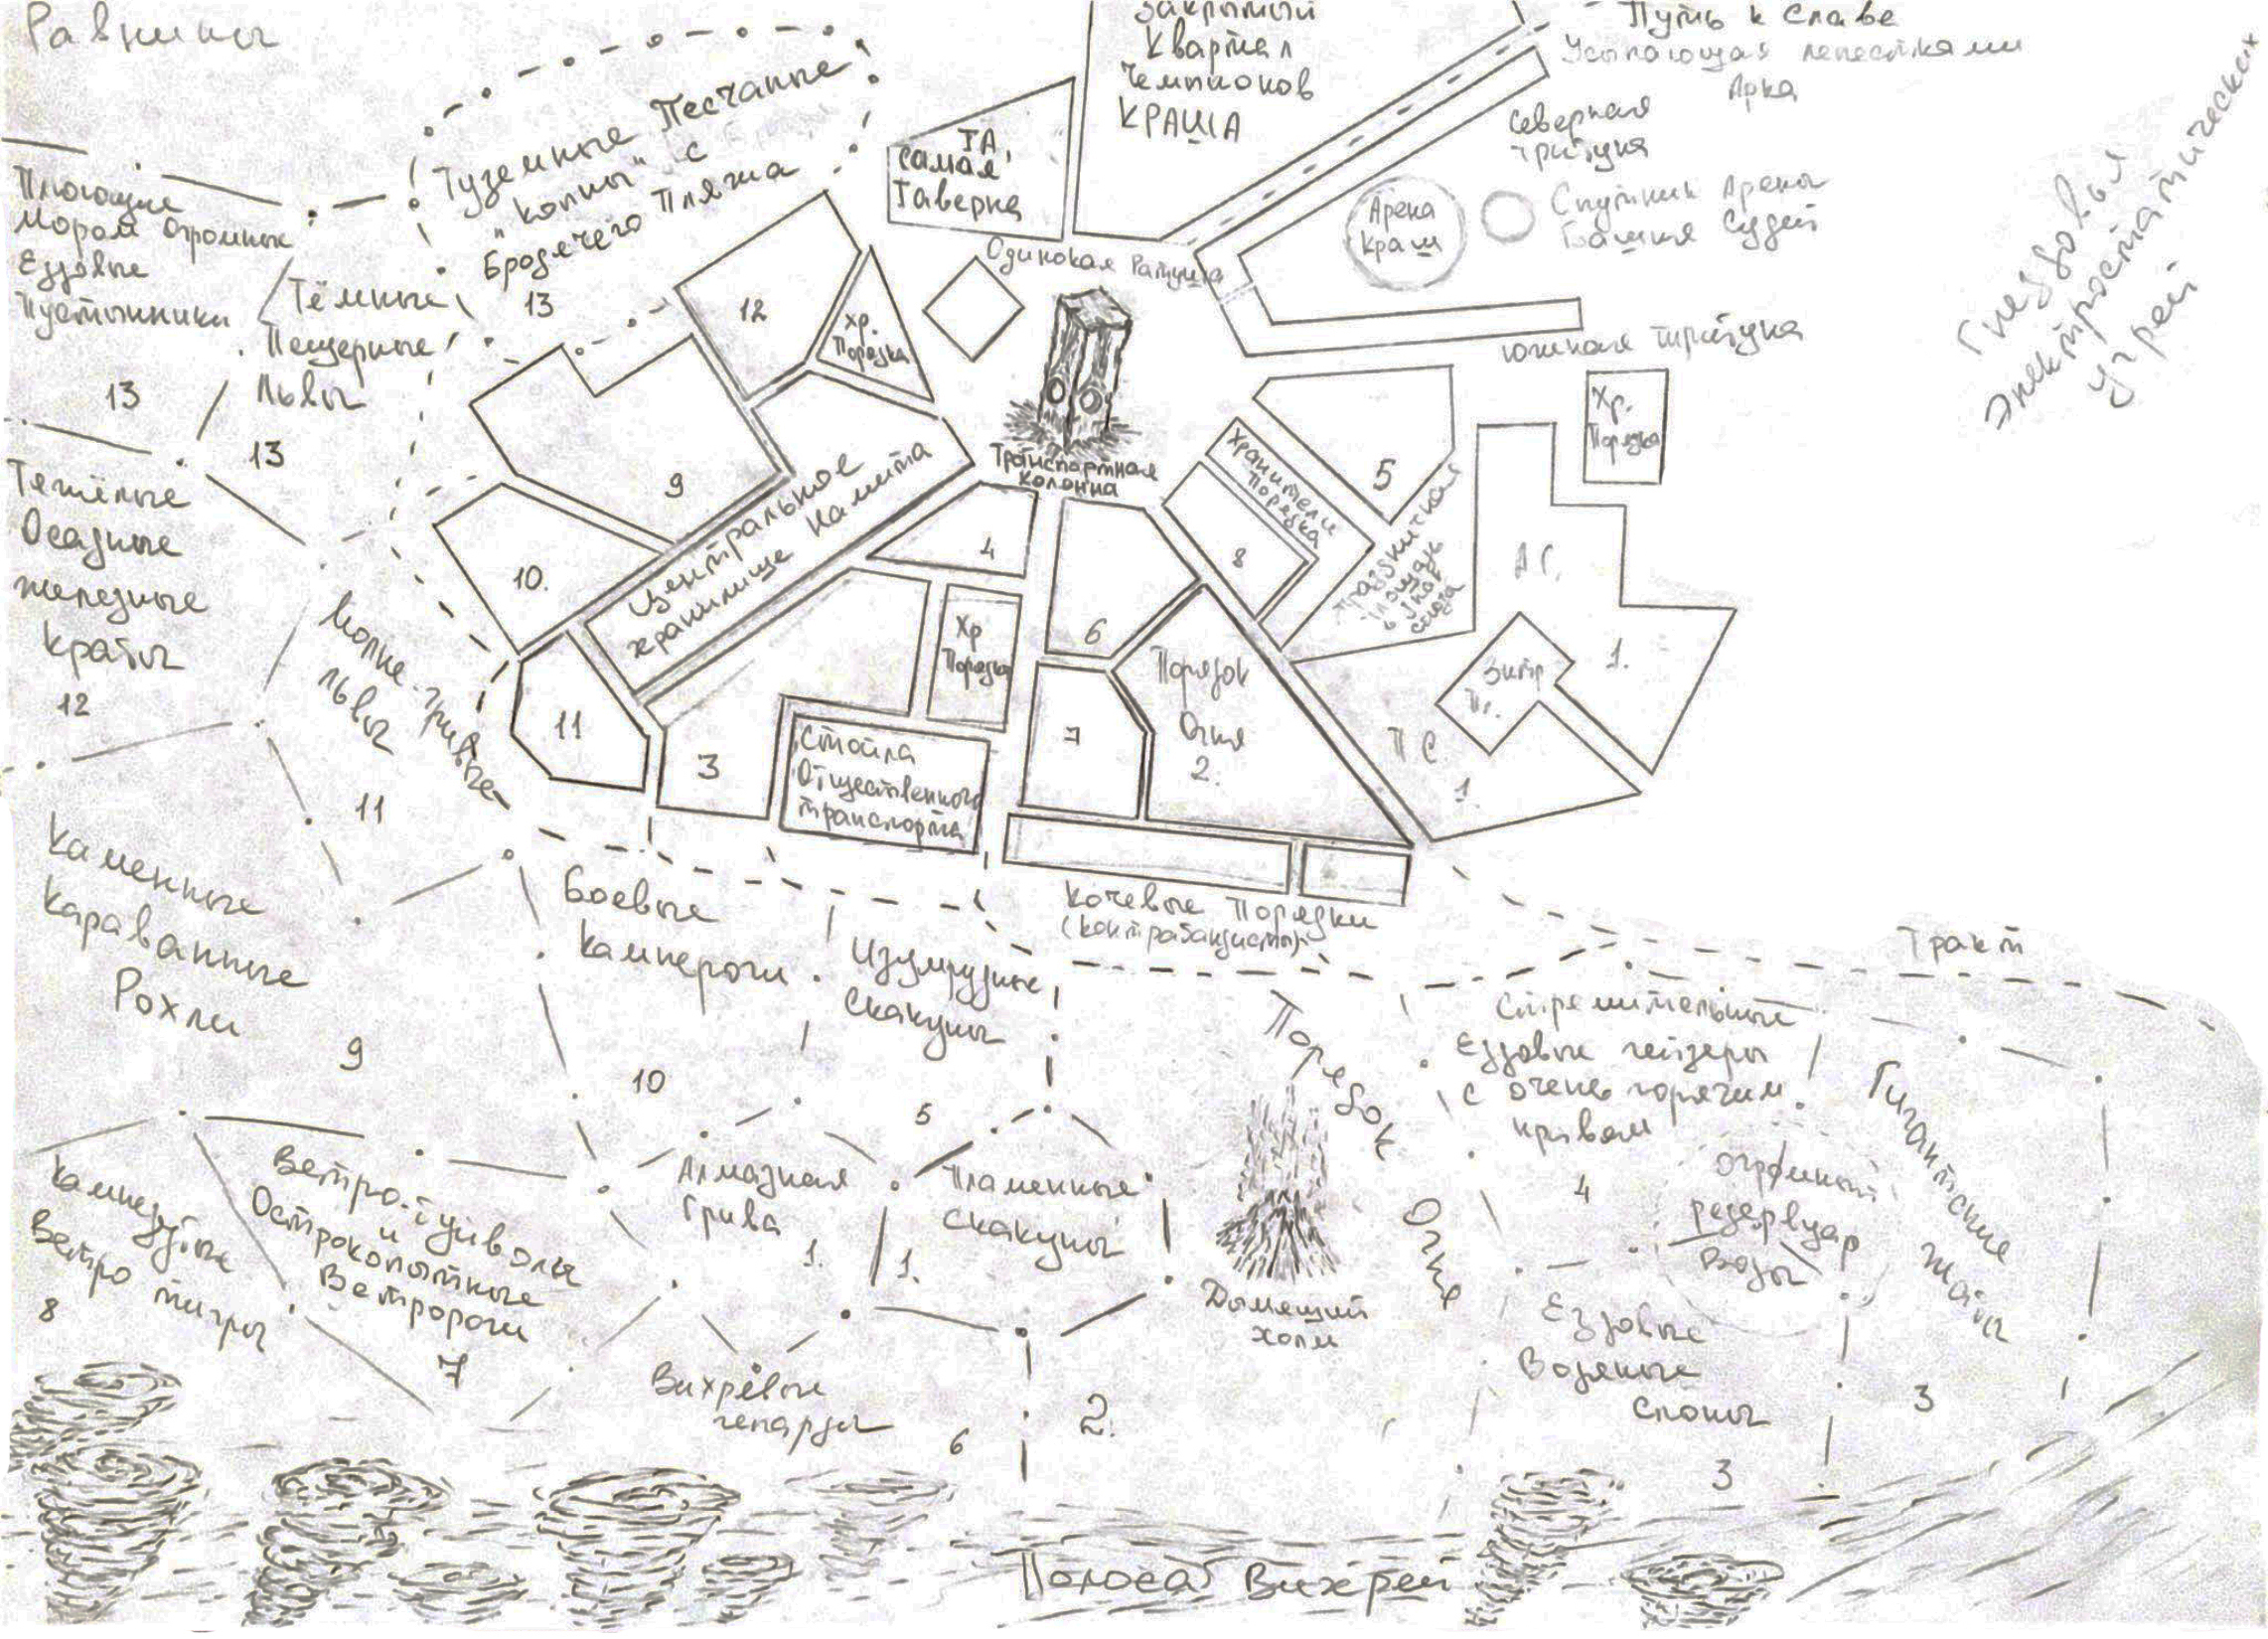 Равнины
Закрытый
Квартал
Чемпионов
КРАША
Путь к Славе
Усыпающая лепестками
Арка
Северная
трибуна
Спутник Арены
Башня Судей
Арена
Краш
Южная трибуна
Гнездовья
Электростатических
угрей
Туземные Песчаные
"копы" с
Бродячего Пляжа
13
ТА
самая
Таверна
Одинокая Ратуша
Плюющие
Мором Огромные
Ездовые
Пустынники
13
Тёмные
Пещерные
Львы
13
12
Хр.
Порядка
Транспортная
колонна
9
10.
11
Центральное
хранилище Камита
4
3
Хр
Порядка
Стойла
Общественного
транспорта
5
Хранители
Порядка
8
6
7
Порядок
Огня
2.
Хр.
Порядка
АГ.
1.
ПС
1.
Кочевые Порядки
(контрабандисты)
Тракт
Тяжёлые
Осадные
железные
крабы
12
Молне-гривые
львы
11
Каменные
Караванные
Рохли
9
Боевые
Камнероги
10
Изумрудные
Скакуны
5
Порядок
Огня
2.
Стремительные
Ездовые гейзеры
с очень горячим
нравом
4
Гигантские
жабы
3
огромный
резервуар
воды
Ездовые
Водяные
Слоны
3
Дымящий
холм
Алмазная
Грива
1.
Пламенные
скакуны
1.
Ветро-буйволы
и
Острокопытные
Ветророги
7
Камнезубые
Ветро тигры
8
Вихревые
гепарды
6
Полоса Вихрей